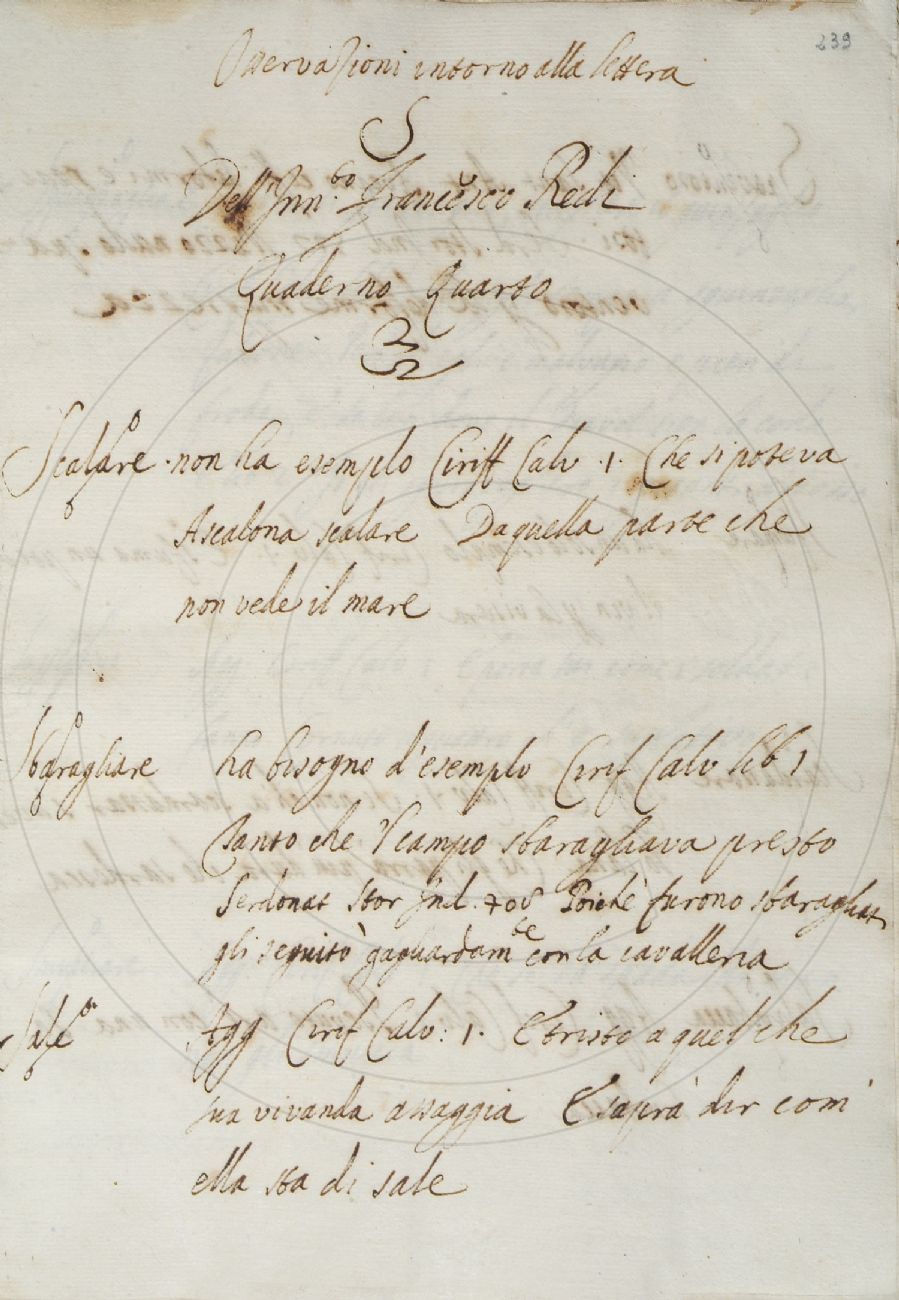 239
Osservazioni intorno alla lettera
S
Dell' Inn.to Francesco Redi
Quaderno Quarto
Scalare non ha esempio Ciriff Calv. 1. Che si poteva
Ascalona scalare Da quella parte che
non vede il mare
Sbaragliare ha bisogno d'esempio Cirif Calv lib 1
Tanto che 'l campo sbaragliava presto
Serdonat Stor Ind. 708 Poiché furono sbaragliati
gli seguitò gagliardam.te con la cavalleria
Sale Agg Cirif Calv: 1. E tristo a quel che
sua vivanda assaggia E saprà dir com'
ella sta di sale